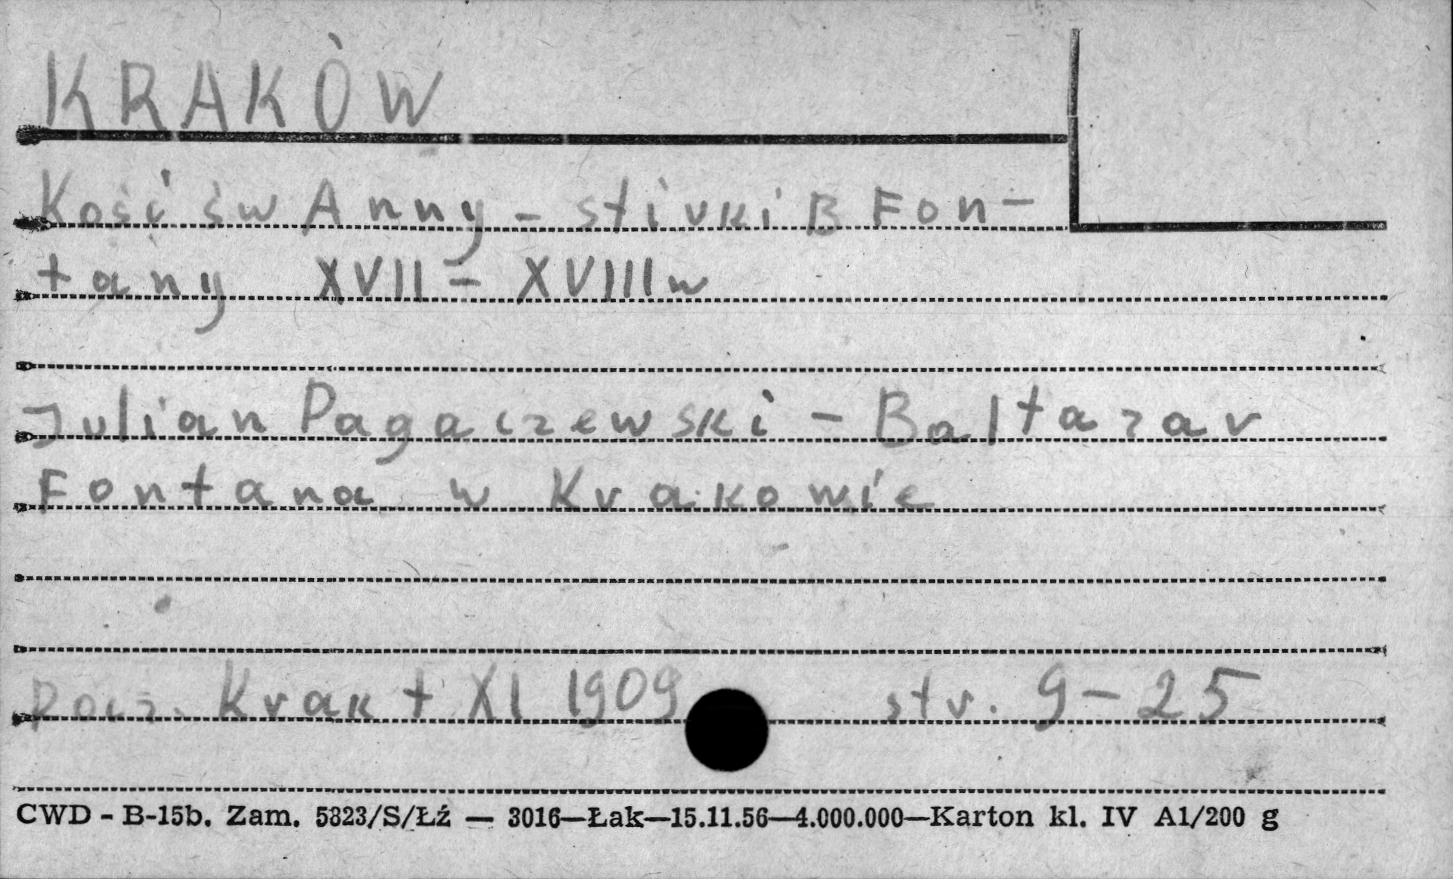 KRAKÓW
Kośc św Anny - stiuki B Fon-
tany XVII - XVIII w
Julian Pagaczewski - Baltazar
Fontana w Krakowie
Rocz. Krak t XI 1909 str. 9-25
CWD - B-15b. Zam. 5823/S/Łź — 3016—Łak—15.11.56—4.000.000—Karton kl. IV A1/200 g